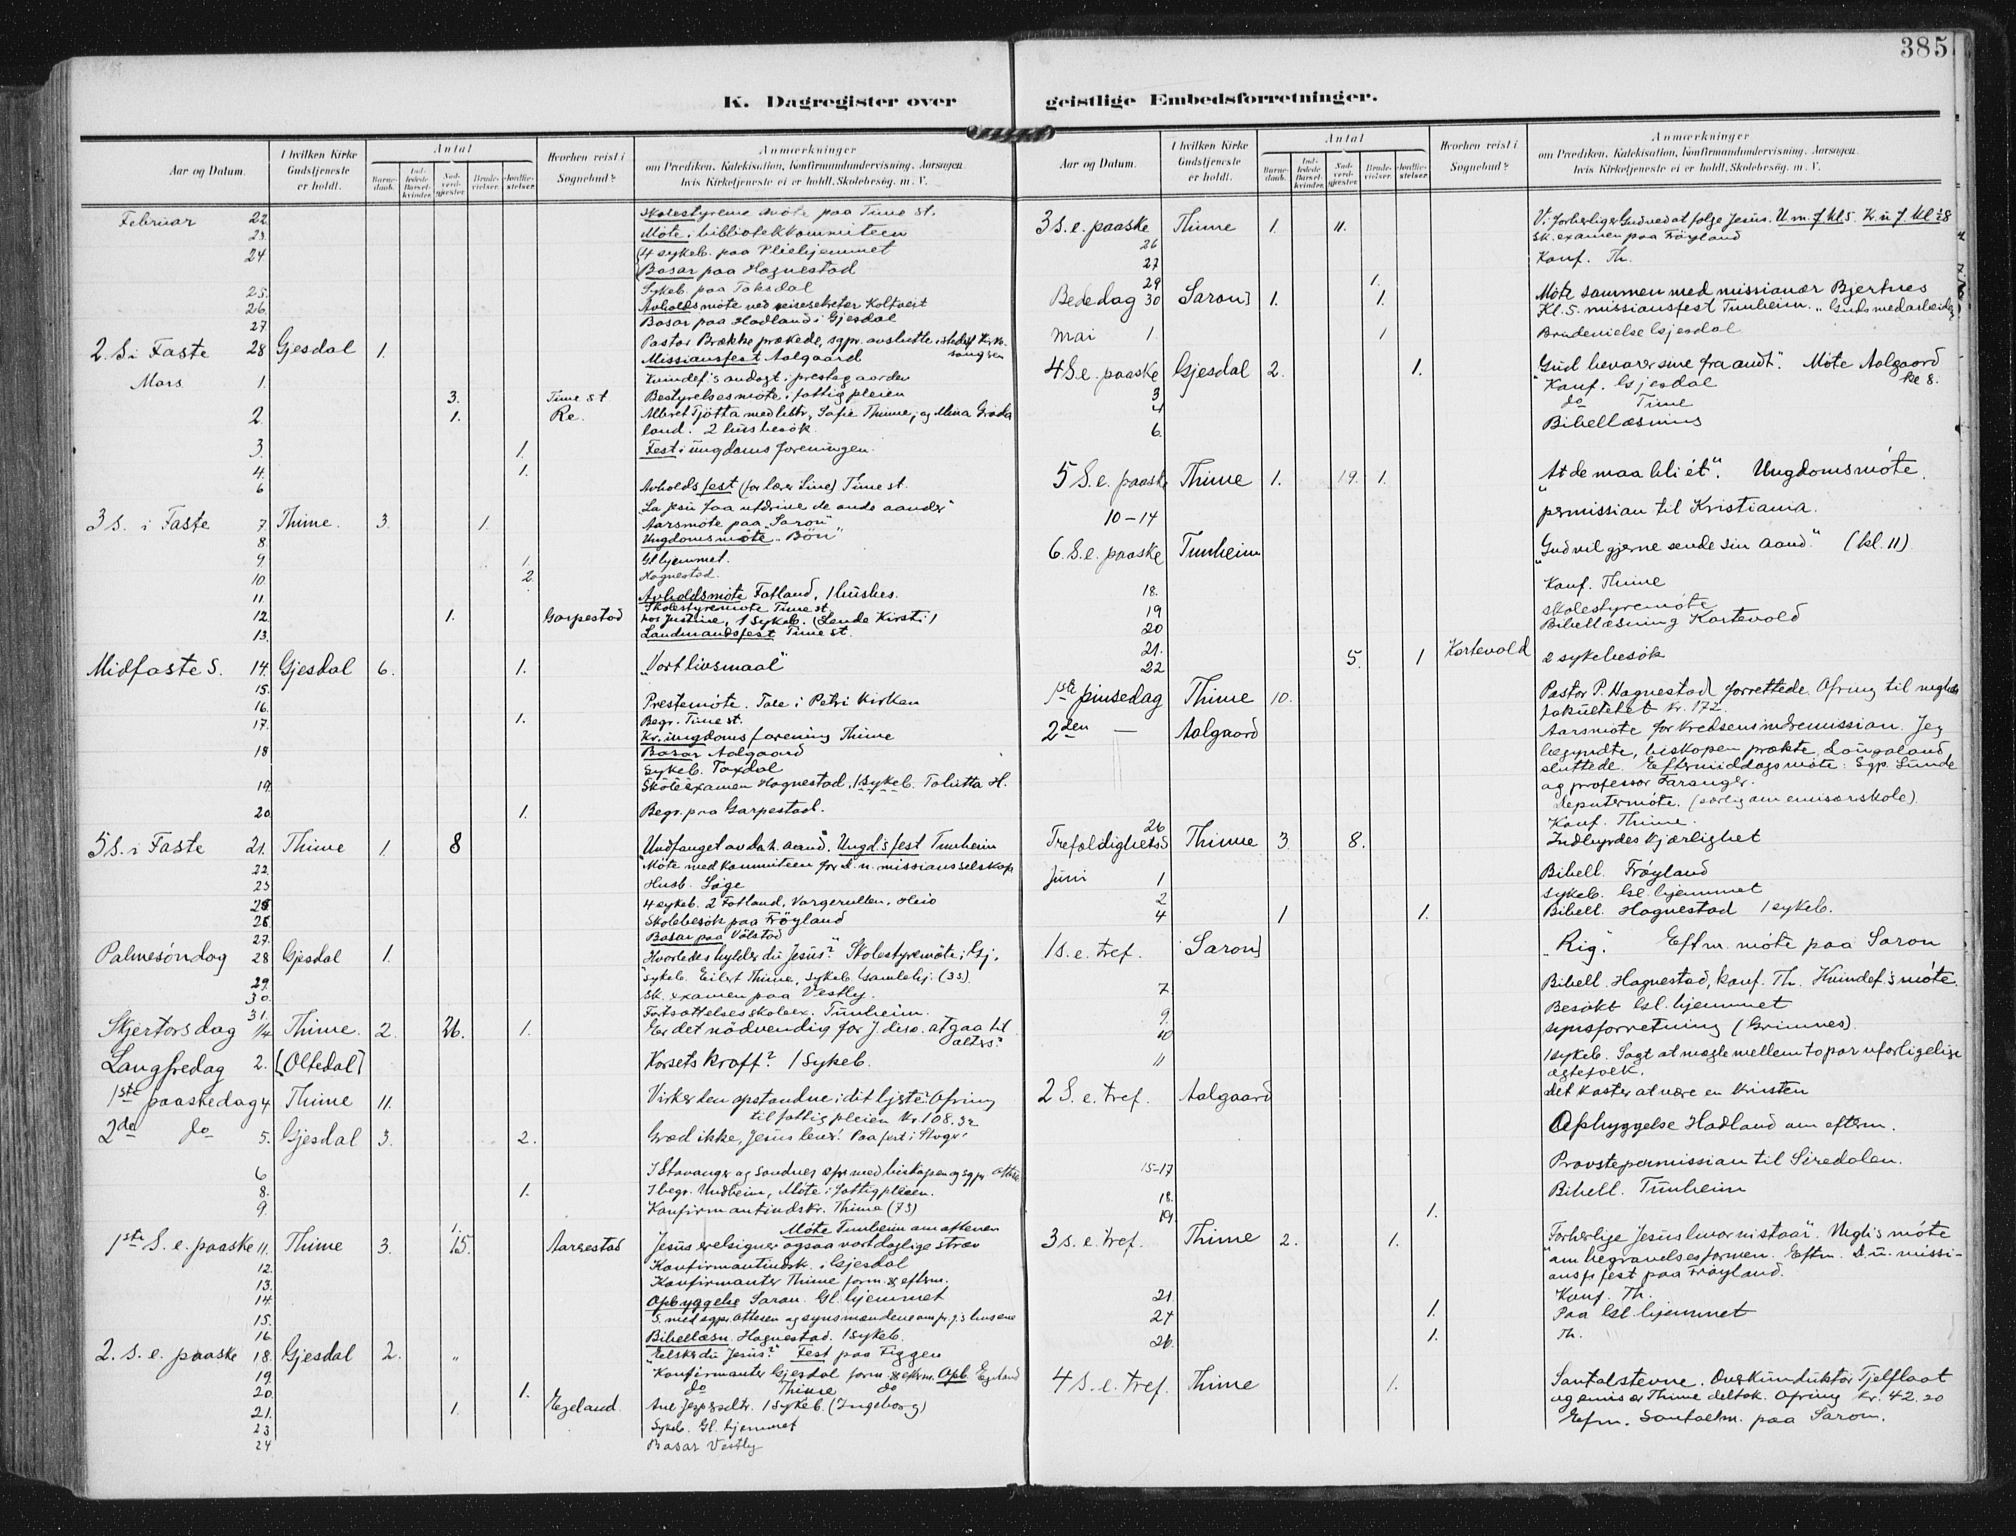 385
K. Dagregister over geistlige Embedsforretninger.
Aar og Datum.
I hvilken Kirke Gudstjeneste er holdt.
Antal
Barnedaab.
Indledede Barselkvinder.
Nadverdgjester
Brudevielser.
Jordfæstelser.
Hvorhen reist i Sognebud?
Anmærkninger
om Prædiken, Katekisation, Konfirmandundervisning, Aarsagen
hvis Kirketjeneste ei er holdt, Skolebesøg, m. V.
Februar 22 Skolestyrene møte paa Time st.
23. Møte i bibliotekkommiteen
24 4 sykeb. paa Pleiehjemmet
Basar paa Hognestad
25. Sykeb. paa Taksdal
26. Avholdsmøte ved reisesekretær Koltveit
27 Basar paa Hadland i Gjesdal
2. S. i Faste 28 Gjesdal 1. Pastor Brække prækede, sgpr. avsluttet
Missiansfest Aalgaard
Mars 1. Kvindef's andagt i prestegaarden
3. Time st Bestyrelsesmøte i fattigpleien
2. 1. Re. Albret Tjøtta med , Sofie Thime, og Alma Grøda
land. 2 husbesøk
3. 1. Fest i ungdomsforeningen.
4. 1.
6 Avholdsfest (for lærer Line) Time st.
"La Jesu faa utdrive de onde aander"
3 S. i Faste 7. Thime. 3. 1. Aarsmøte paa "Saron"
8. Ungdomsmøte "Bøn"
9. 1. Gl hjemmet.
10. 2. Hognestad.
11. Avholdsmøte Fotland, 1 husbes.
12. 1. Garpestad Skolestyremøte Time st.
hos Justine, 1 Sykeb. (Lende Kirsti)
13. Landmandsfest Time st.
Midfaste S. 14. Gjesdal 6. 1. "Vort livsmaal"
15.
16. Prestemøte. Tale i Petri Kirken
17. 1. Begr. Time st.
Kr. ungdoms forening Thime
18 Basar Aalgaard
Sykeb. Taxdal
19. Skoleexamen Hognestad, 1 sykeb. Tolutta H.
20. 1. Begr. paa Garpestad.
5 S. i Faste 21. Thime 1. 8 Undfanget av d. h. aand". Ungd's fest Tunheim
22. Møte med kommiteen for d. n. missiansselskap
23 Husb. Løge
25 4 sykeb. 2 Fotland, Vargerullen, Heio
26 Skolebesøk paa Frøyland
27. Basar paa Vølstad
Palmesøndag 28 Gjesdal 1. Hvorledes hylder du Jesus? Skolestyremøte i Gj.
29. sykeb. Eilert Thime, sykeb. samlehj. (3 S)
30. Sk. examen paa Vestly.
31. Fortsættelsesskoleex. Tunheim.
Skjertorsdag 1/4 Thime. 2. 26. 1. Er det nødvendig for J. disc. at gaa til alters?"
Langfredag 2. [Oltedal] Korsets kraft? 1 Sykeb.
1ste paaskedag 4 Thime 11. Virker den opstandne i dit hjerte? Ofring
til fattigpleien Kr. 108.32
2de do 5. Gjesdal 3. 2. Græd ikke, Jesus lever. Paa fest i
6 I Stavanger og Sandnes
8. 1. I begr. Undheim, Møte i fattigpleien.
9. Konfirmantindskr. Thime (73)
1. Møte Tunheim om aftenen
1ste S. e. paaske 11. Thime 3. 15. Aarrestad Jesus velsigner ogsaa vort daglige stræv
12. Konfirmantindsk. i Gjesdal
13. Konfirmanter Thime form. & efterm.
14. Opbyggelse Saron. Gl. hjemmet
15.
16. Bibellæsn. Hognestad. 1 Sykeb.
2. S. e. paaske 18. Gjesdal 2. " "Elsker du Jesus?" Fest paa Figgen
19. Konfirmanter Gjesdal form. & efterm. Opb. Egeland
20. 1. do Thime do
21. 1. Egeland. Ane . 1 Sykeb. (Ingeborg)
23 Sykeb. Gl. hjemmet
24 Basar Vestly
Aar og Datum.
I hvilken Kirke Gudstjeneste er holdt.
Antal
Barnedaab.
Indledede Barselkvinder.
Nadverdgjester
Brudevielser.
Jordfæstelser.
Hvorhen reist i Sognebud?
Anmærkninger
om Prædiken, Katekisation, Konfirmandundervisning, Aarsagen
hvis Kirketjeneste ei er holdt, Skolebesøg, m. V.
3 S. e. paaske Thime 1. 11. Vi forherliger Gud ved at følge Jesus. U. m. f. kl 5. K u f Kl 8
26 Sk. examen paa Frøyland
27 Konf. Th.
29 1.
Bededag 30 Saron] 1. 1. Møte sammen med missianær Bjertnes
Kl. 5. missiansfest Tunheim. "Guds medarbeider
mai 1. 1 Brudevielse Gjesdal
4 S. e. paaske Gjesdal 2. 1. Gud bevarer sine fra ondt". Møte Aalgaard Kl 8.
3 Konf. Gjesdal
4 do Time
6. Bibellæsning
5 S. e. paaske Thime 1. 19. 1. "At de maa bli ét". Ungdomsmøte.
10-14 permissian til Kristiania.
6. S. e. paaske Tunheim "Gud vil gjerne sende sin Aand" (kl. 11)
18. Konf. Thime
19 Skolestyremøte
20 Bibellæsning Kartevold
21.
22 5. 1 Kartevold 2 sykebesøk
1ste pinsedag Thime 10. Pastor P. Hognestad forrettede. Ofring til menighets
fakultetet Kr. 172
2den — Aalgaard Aarsmøte for kredsens indremissian. Jeg
begyndte, biskopen prækte, Laugaland
sluttede. Eftermiddagsmøte: Sgp. Sunde
og professor Færanger.
Deputermøte. (særlig om emisærskole)
26 Konf. Thime.
Trefoldighetss Thime 3. 8. Indbyrdes kjærlighet
Juni 1 Bibell. Frøyland
2 Sykeb. Gl. hjemmet
4 1 1. Bibell. Hognestad 1 sykeb.
1 S. e. tref. [Saron] "Rig". Eftm. møte paa Saron
7. Bibell. Hognestad, konf. Th. Kvindef's møte.
9. Besøkt Gl. hjemmet
10 synsforretning (Grimnes).
11 1 sykeb. Søgt at mægle mellem to par uforligelige
egtefolk.
2 S. e. tref. Aalgaard det koster at være en kristen
Opbyggelse Hadland om efterm.
15-17 Provstepermissian til Siredalen.
18. Bibell. Tunheim
19. 1.
3 S. e. tref. Thime 2. 1. Forherlige Jesus hvor vi staar". Megh's møte
om begravelsesformen. Eftm. D. n. missi-
ansf's fest paa Frøyland.
21. Konf. Th.
24 1. Paa Gl. hjemmet
26. 1. Th.
4 S. e. tref. Thime 1. Santalstevne. Overkunduktør Tjelflaat
og emisær Thime deltok. Ofring Kr. 42.20
Efm. Santalm. paa Saron.